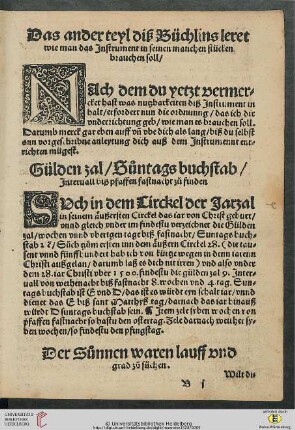 Das ander teyl diß Büchlins leret
wie man das Instrument in seinen manchen stücken
brauchen soll/
NAch dem du yetzt vermer-
cket hast was nutzbarkeiten diß Instrument in
halt/erfordert nun die ordnung/das ich dir
vnderrichtung geb/wie man es brauchen soll.
Darumb merck gar eben auff vñ vbe dich als lang/biß du selbst
on vorgeschribne anleytung dich auß dem Instrument ent
richten mügest.
Gülden zal/Süntags buchstab/
Interuall biß pfaffen fastnacht zů finden
SVch in dem Circkel der Jarzal
in seinem äußersten Circkel das iar von Christ geburt/
vnnd gleich vnder im findestu verzeichnet die Gülden
zal/wochen vnnd vberigen tage biß fastnacht/Suntags buch-
stab
tausent vnnd fünffhundert hab ich von kürtz wegen in denn iaren
Christi außgelan/darumb laß es dich nit irren/ vnd also vnder
dem 28. iar Christi vber 1500. findestu die gülden zal 9. Inter-
uall von weihenacht biß fastnacht 8. wochen vnd 4. tag. Sun-
tags buchstab ist E vnd D/das ist es würdt eyn schalt iar/vnd
dienet das E biß sant Mathyß tag/darnach das iar hinauß
würdt D Suntags buchstab sein. Item zele siben wochen von
pfaffen fastnacht so hastu den ostertag. Zele darnach weither sy-
ben wochen/so findestu den pfingstag.
Der Sünnen waren lauff vnd
grad zů sůchen.
Wilt du
B j
UNIVERSITÄTS-
BIBLIOTHEK
HEIDELBERG
© Universitätsbibliothek Heidelberg